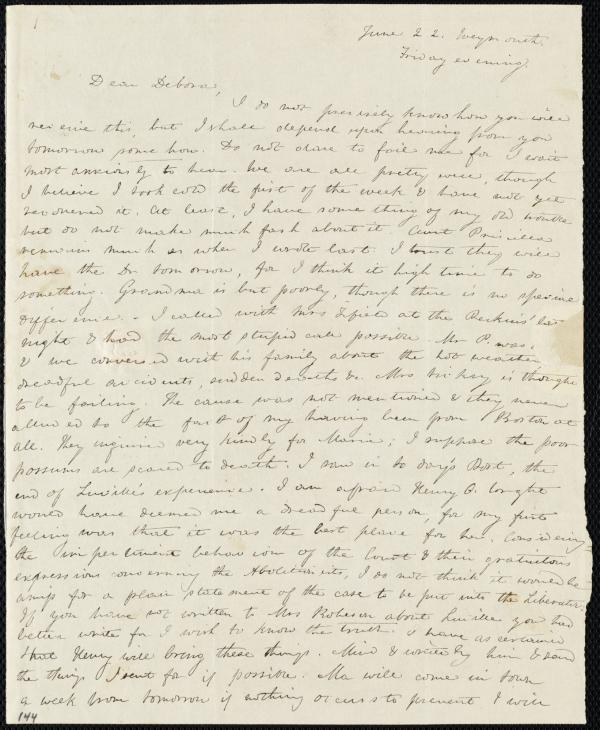 June 22. Weymouth.
Friday evening.
Dear Debora,
I do not precisely know how you will
receive this, but I shall depend upon hearing from you
tomorrow some how. Do not dare to fail me for I wait
most anxiously to hear. We are all pretty well, though
I believe I took cold the first of the week & have not yet
recovered it. At least, I have some thing of my old trouble
but do not make much fash about it. Aunt Priscilla
remains much as when I wrote last. I trust they will
have the Dr. tomorrow, for I think it high time to do
something. Grandma is but poorly, though there is no special
difference. I called with Mrs at the Perkins' last
night & had the most stupid call possible. Mr P. was,
& we conversed with his family about the hot weather
dreadful accidents, sudden deaths &c. Mrs is thought
to be failing. The cause was not mentioned & they never
alluded to the fact of my having been from Boston at
all. They inquired very kindly for Maria; I suppose the poor
possums are scared to death. I saw in to day's Post, the
end of Lucille's experience. I am afraid Henry B.
would have deemed me a dreadful person, for my first
feeling was that it was the best place for her. Considering
the impertinent behaviour of the Court & their gratuitous
expressions concerning the Abolitionists, I do not think it would be
amiss for a plain statement of the case to be put into the Liberator.
If you have not written to Mrs Robeson about Lucille you had
better write for I wish to know the truth. I have ascertained
that Henry will bring these things. Mind & write by him & send
the things I sent for if possible. Ma will come in town
a week from tomorrow if nothing occurs to prevent I will
144